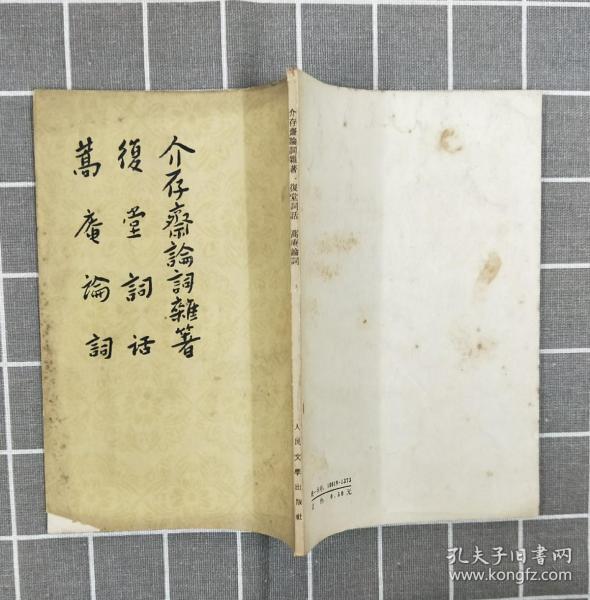 介存齋論詞雜著
復堂詞話
蒿庵論詞
介存齋論詞雜著·復堂詞話 蒿庵論詞
人民文學出版社
书号 10019·1273
定价 0.30元
孔夫子旧书网
www.kongfz.com